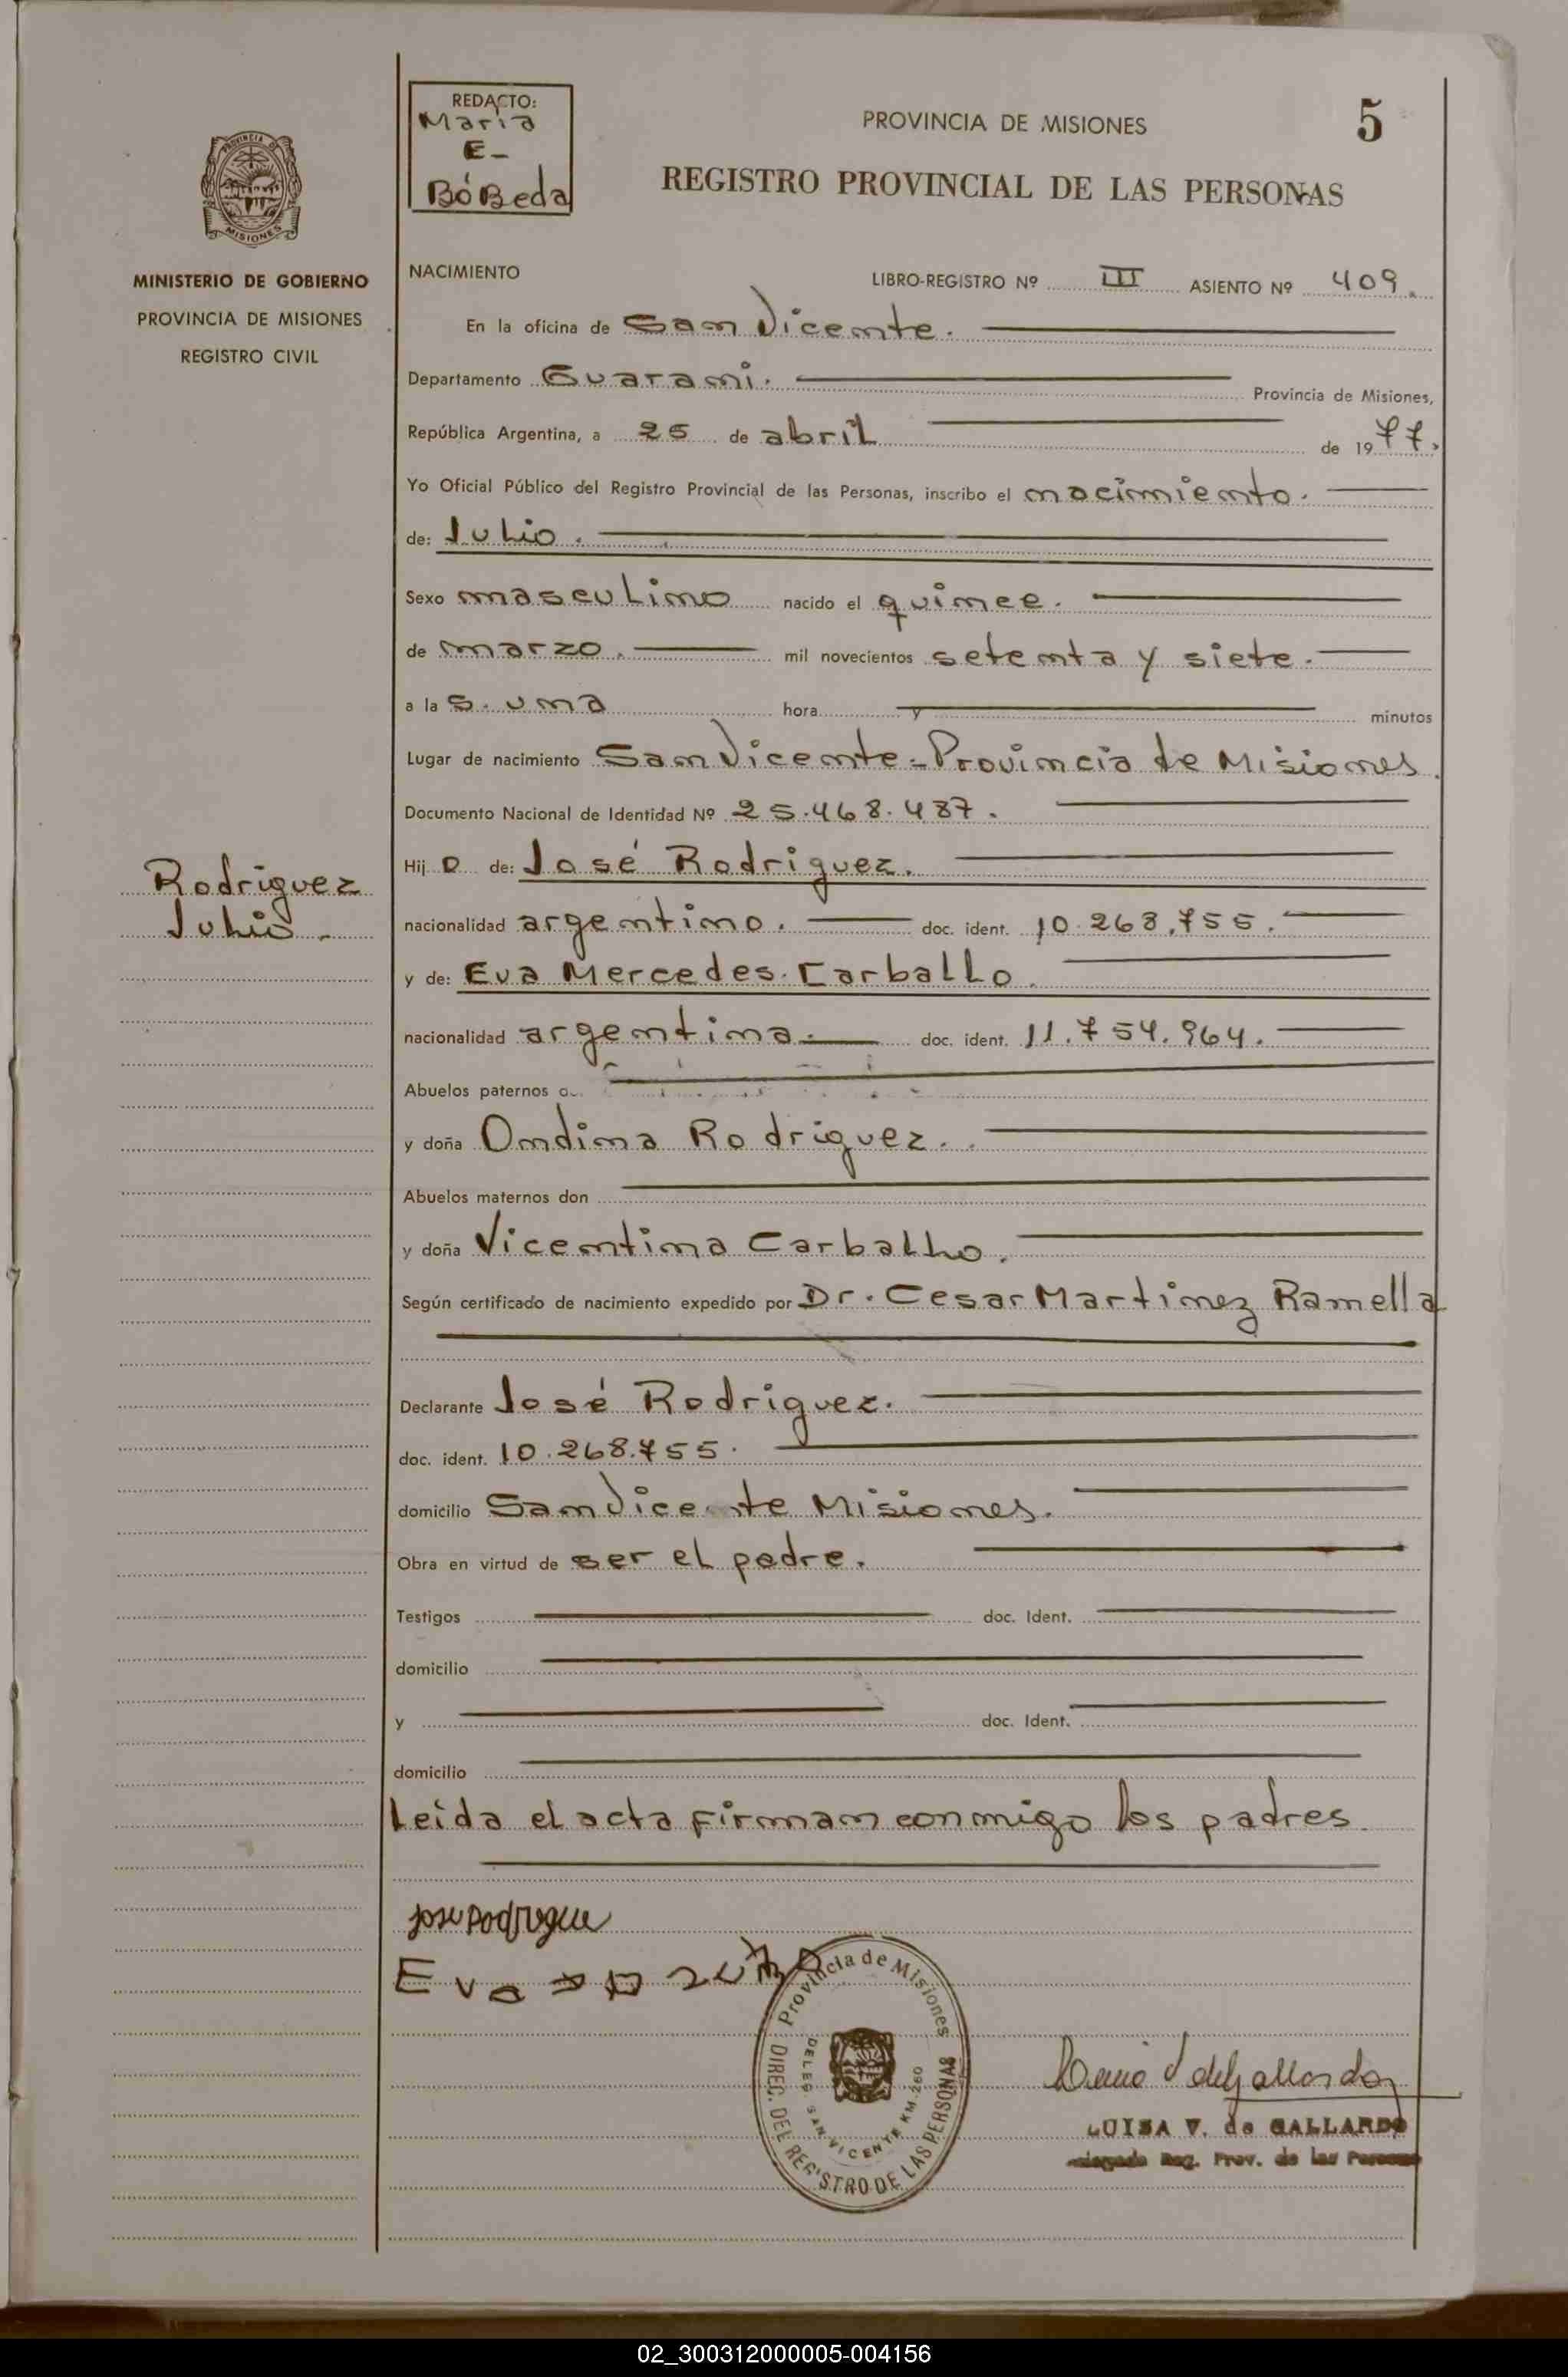 REDACTO:
Maria
E-
BóBeda
PROVINCIA DE MISIONES
5
REGISTRO PROVINCIAL DE LAS PERSONAS
PROVINCIA DE
MISIONES
MINISTERIO DE GOBIERNO
PROVINCIA DE MISIONES
REGISTRO CIVIL
NACIMIENTO
LIBRO-REGISTRO Nº III ASIENTO Nº 409.
En la oficina de San Vicente.
Departamento Guarani. Provincia de Misiones,
República Argentina, a 25 de abril de 1977.
Yo Oficial Público del Registro Provincial de las Personas, inscribo el nacimiento.
de: Julio.
Sexo masculino nacido el quince.
de marzo. mil novecientos setenta y siete.
a la s. una hora y minutos
Lugar de nacimiento San Vicente - Provincia de Misiones.
Documento Nacional de Identidad Nº 25.468.487.
Hij o de: José Rodriguez.
Rodriguez
Julio.-
nacionalidad argentino. doc. ident. 10.268.755.
y de: Eva Mercedes Carballo.
nacionalidad argentina. doc. ident. 11.754.964.
Abuelos paternos
y doña Ondina Rodriguez.
Abuelos maternos don
y doña Vicentina Carballo.
Según certificado de nacimiento expedido por Dr. Cesar Martinez Ramella
Declarante José Rodriguez.
doc. ident. 10.268.755.
domicilio San Vicente Misiones.
Obra en virtud de ser el padre.
Testigos doc. Ident.
domicilio
y doc. Ident.
domicilio
Leida el acta firman conmigo los padres.
Eva
Provincia de Misiones
DIREC. DEL REGISTRO DE LAS PERSONAS
DELEG. SAN VICENTE KM. 260
LUISA V. de GALLARDO
Reg. Prov. de las
02_300312000005-004156